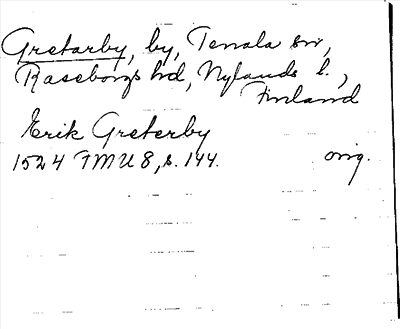 Gretarby, by, Tenala sn,
Raseborgs hd, Nylands l.,
Finland
Erik Greterby
1524 FMU 8, s. 144. orig.